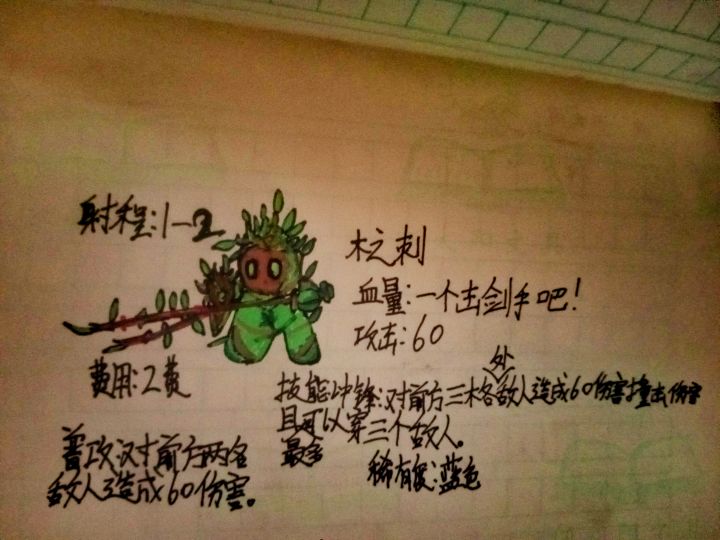 射程:1-2
木之刺
血量:一个击剑手吧!
攻击:60
费用:2费
技能冲锋:对前方三木各处敌人造成60伤害撞击伤害
且可以穿三个敌人。
普攻对前方两名
敌人造成60伤害。
稀有度:蓝色